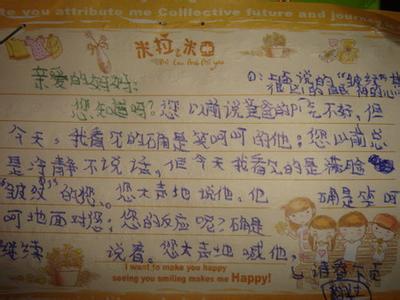 te you attribute me Colllective future and journe
米拉と米亞
亲爱的妈妈:
您知道吗?您以前说爸爸的脾气不好,但
今天,我看见的确是笑呵呵的他;您以前总
是守静不说话,但今天我看见的是满脸
"皱纹"的您。您大声地说他,他 确是笑呵
呵地面对您,您的反应呢?确是
继续 说着。您大声地喊他,
I want to make you happy
seeing you smiling makes me Happy!